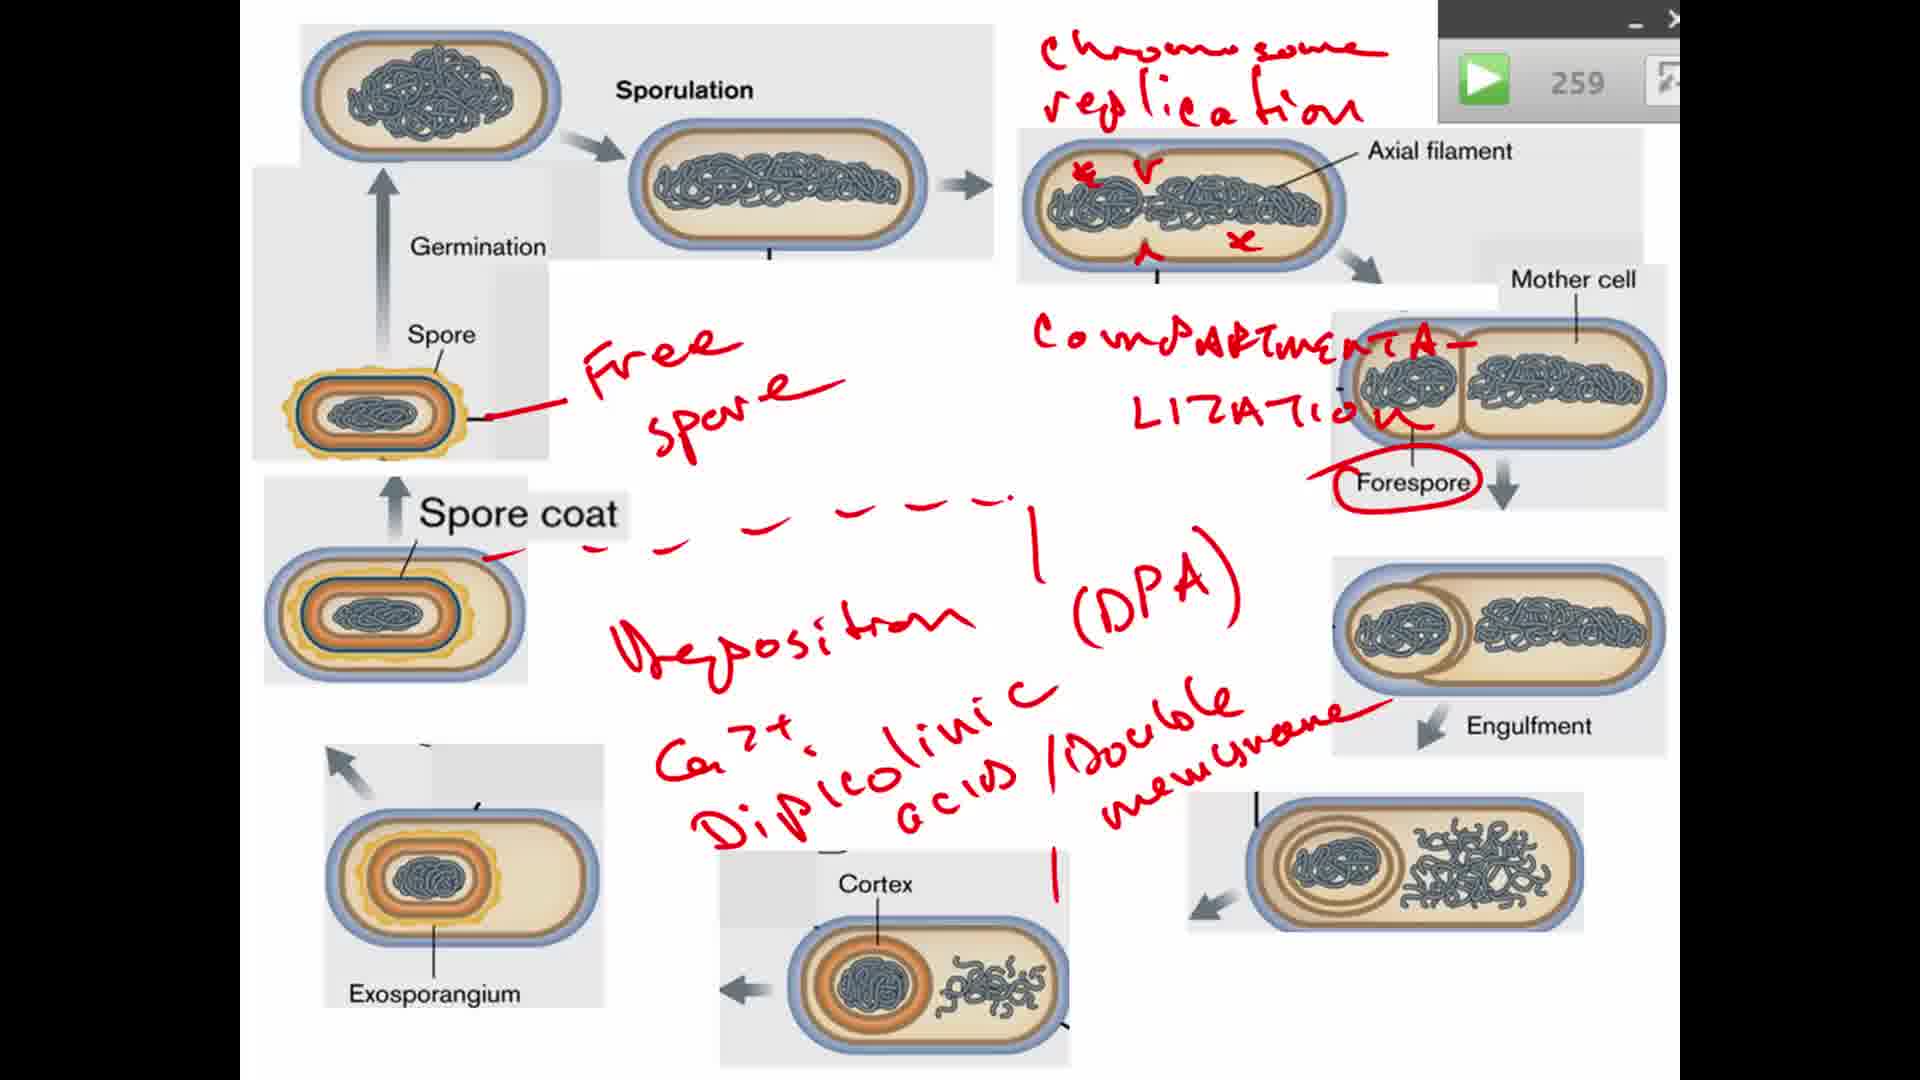 Sporulation
chromosome
replication
259
Axial filament
Germination
Mother cell
Spore
Free
spore
COMPARTMENTA-
LIZATION
Forespore
Spore coat
Deposition
(DPA)
Ca2+.
Dipicolinic
acid / Double
membrane
Engulfment
Cortex
Exosporangium